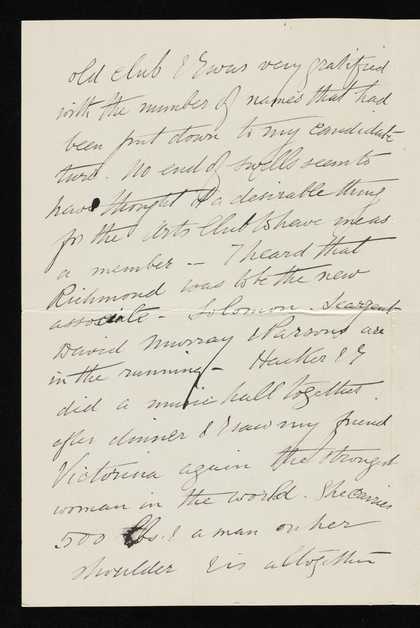 old club & I was very gratified
with the number of names that had
been put down to my candida-
ture. No end of swells seem to
have thought it a desirable thing
for the Arts Club to have me as
a member — I heard that
Richmond was to be the new
associate - Solomon. Seargent
David Murray & Parsons are
in the running - Hacker & I
did a music hall together
after dinner & I saw my friend
Victorina again the strongest
woman in the world. She carries
500 lbs. & a man on her
shoulder & is altogether